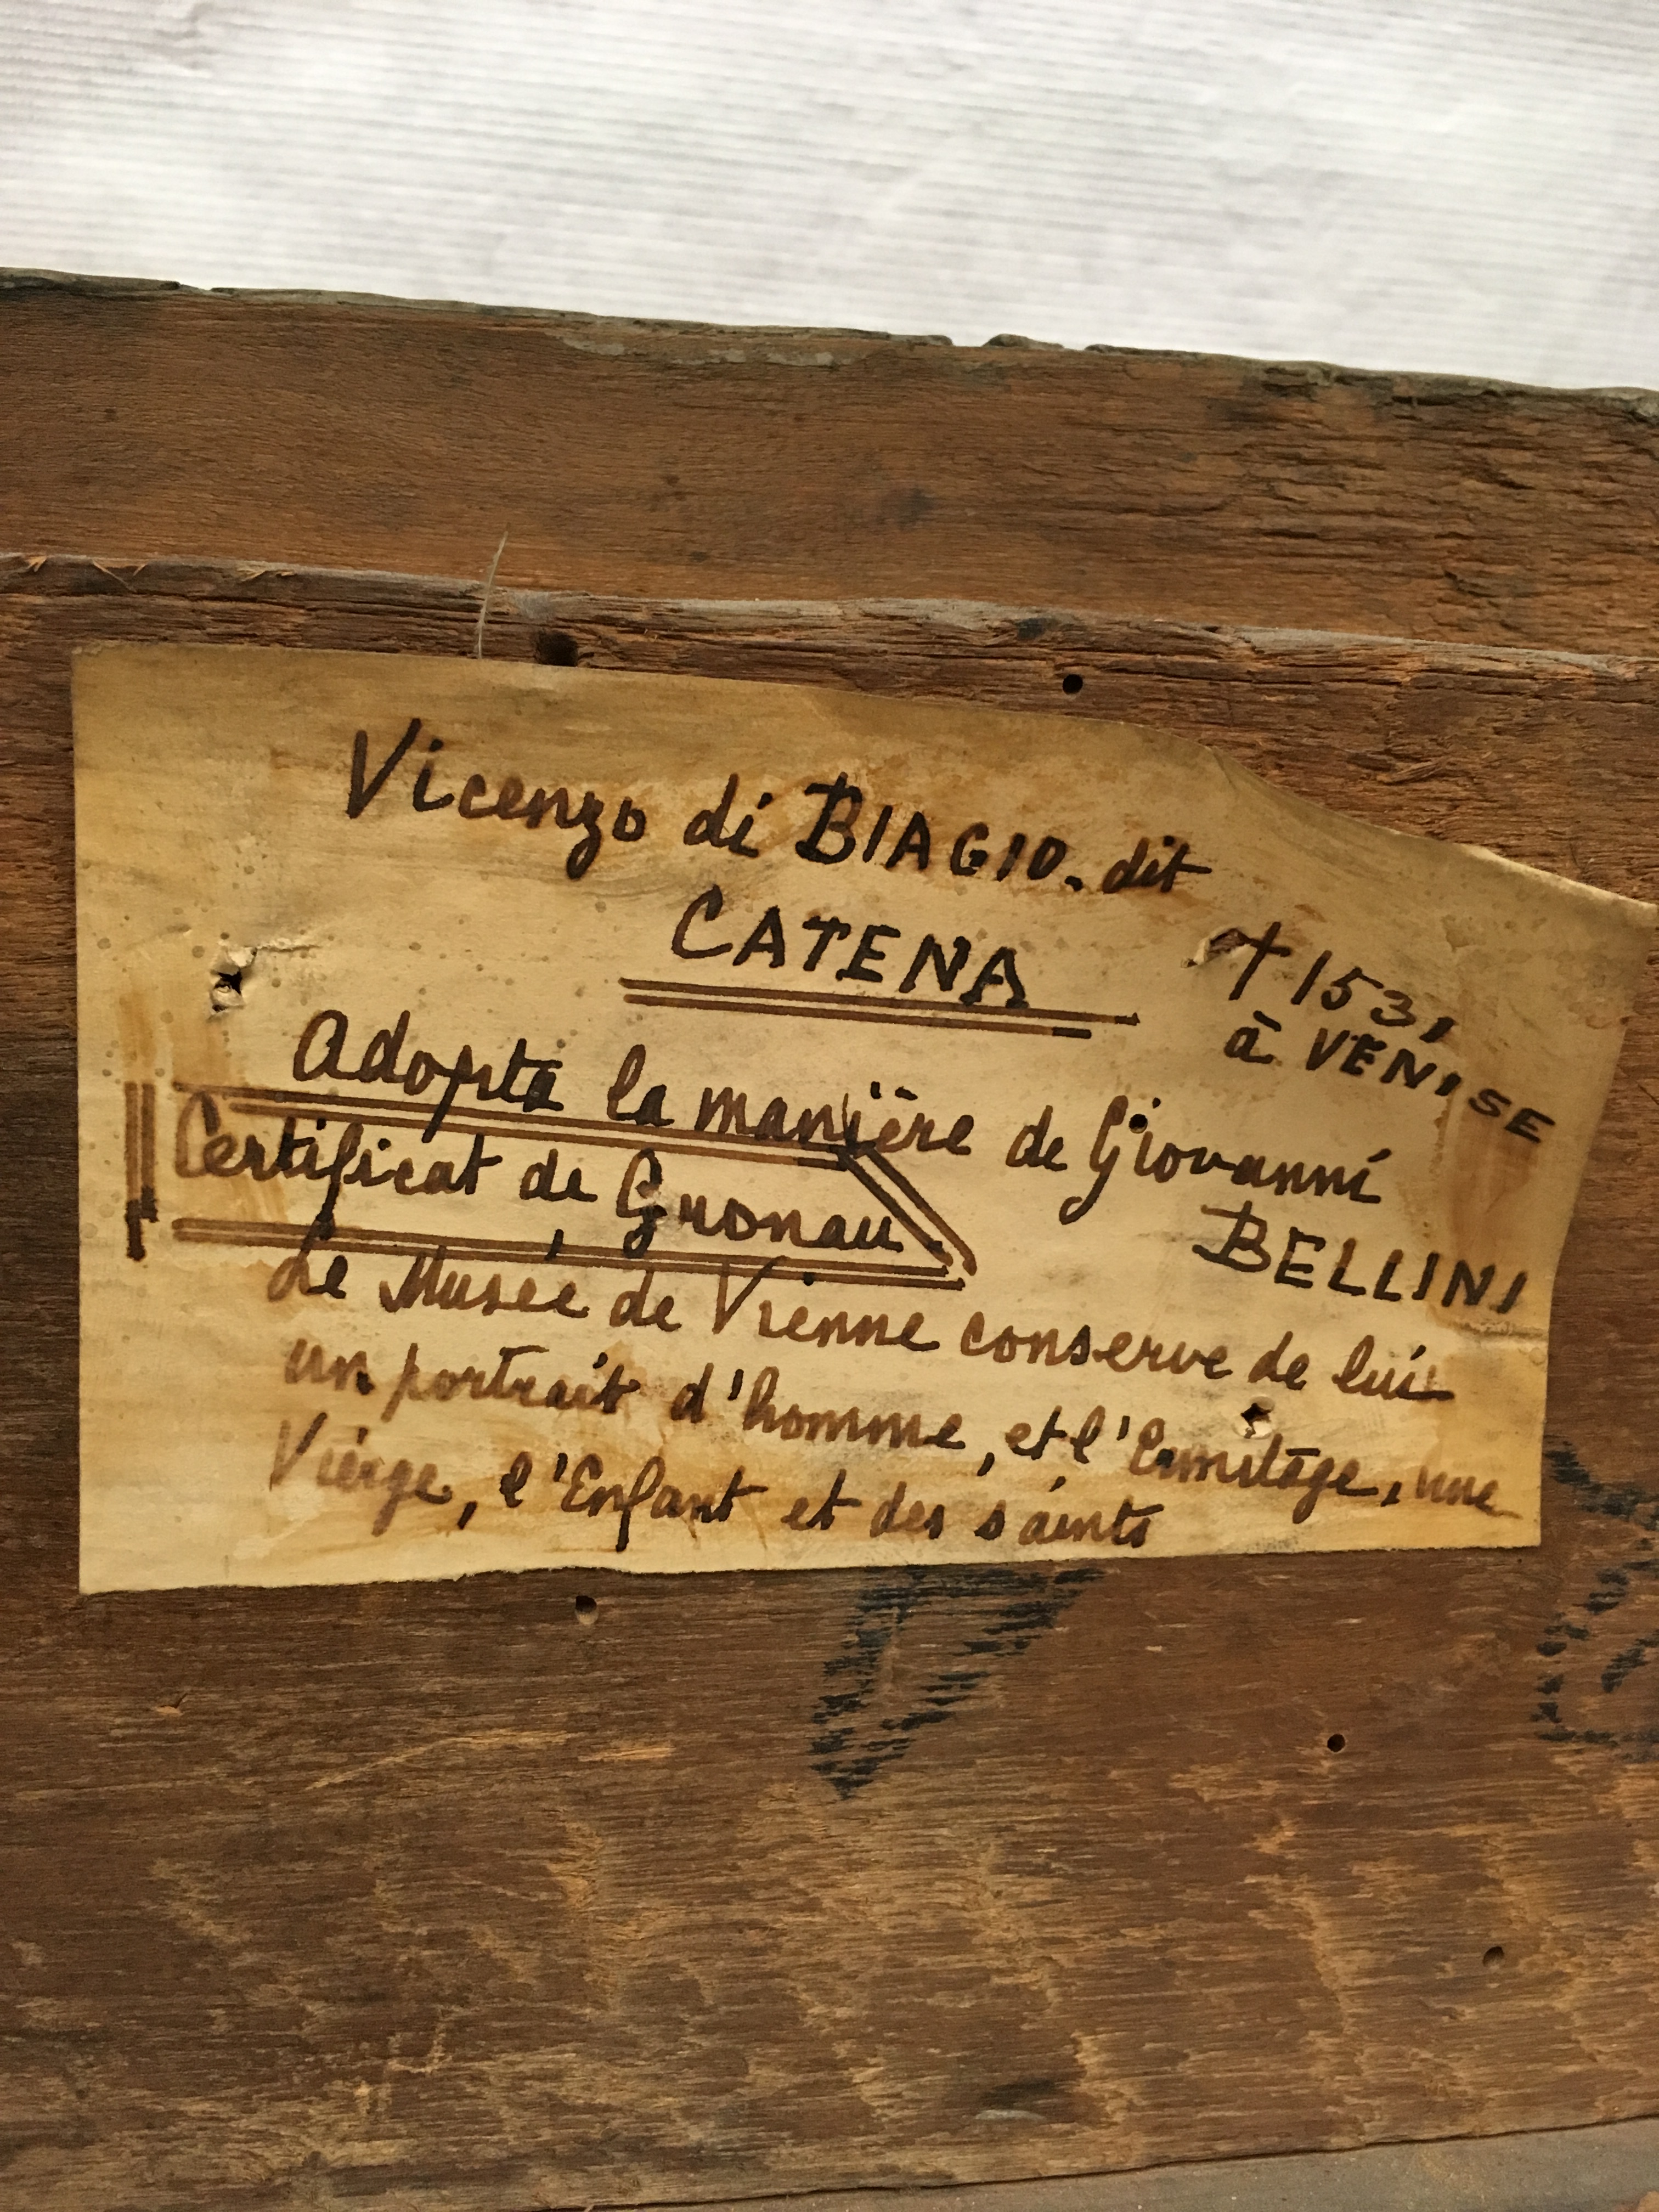 Vicenzo di BIAGIO. dit
CATENA
† 1531
à VENISE
Adopta la manière de Giovanni
BELLINI
Certificat de Gronau.
Le Musée de Vienne conserve de lui
un portrait d'homme, et l'Ermitage, une
Vierge, l'Enfant et des saints